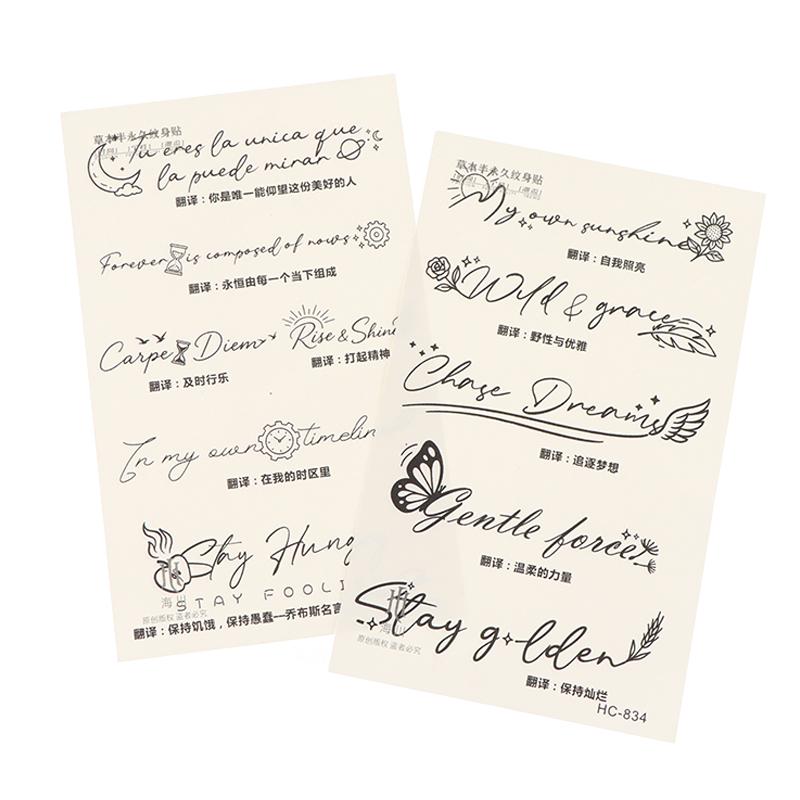 草本半永久纹身贴
Tu eres la unica que
la puede mirar
翻译：你是唯一能仰望这份美好的人
Forever is composed of nows
翻译：永恒由每一个当下组成
Carpe Diem
翻译：及时行乐
Rise & Shine
翻译：打起精神
In my own timelin
翻译：在我的时区里
Stay Hung
STAY FOOLI
海川
原创版权 盗者必究
翻译：保持饥饿，保持愚蠢—乔布斯名言
草本半永久纹身贴
My own sunshine
翻译：自我照亮
Wild & grace
翻译：野性与优雅
Chase Dreams
翻译：追逐梦想
Gentle force
翻译：温柔的力量
Stay golden
原创版权 盗者必究
翻译：保持灿烂
HC-834